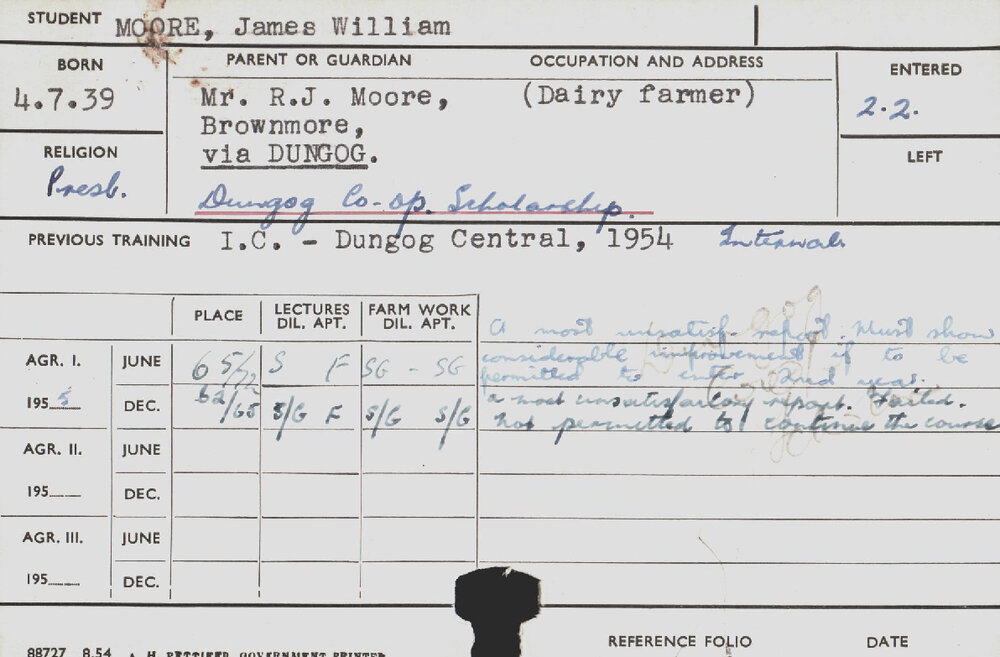 STUDENT MOORE, James William
BORN PARENT OR GUARDIAN OCCUPATION AND ADDRESS ENTERED
4.7.39 Mr. R.J. Moore, (Dairy farmer) 2.2.
Brownmore,
RELIGION via DUNGOG. LEFT
Presb. Dungog Co-op. Scholarship.
PREVIOUS TRAINING I.C. - Dungog Central, 1954
PLACE LECTURES DIL. APT. FARM WORK DIL. APT.
A most unsatisf. report. Must show
AGR. I. JUNE 65/72 S F SG - SG considerable improvement if to be
permitted to enter 2nd year.
1955 DEC. 62/65 S/G F S/G S/G a most unsatisfactory report. Failed.
Not permitted to continue the course
AGR. II. JUNE
195 DEC.
AGR. III. JUNE
195 DEC.
REFERENCE FOLIO DATE
88727 8.54 A. H. PETTIFER GOVERNMENT PRINTER